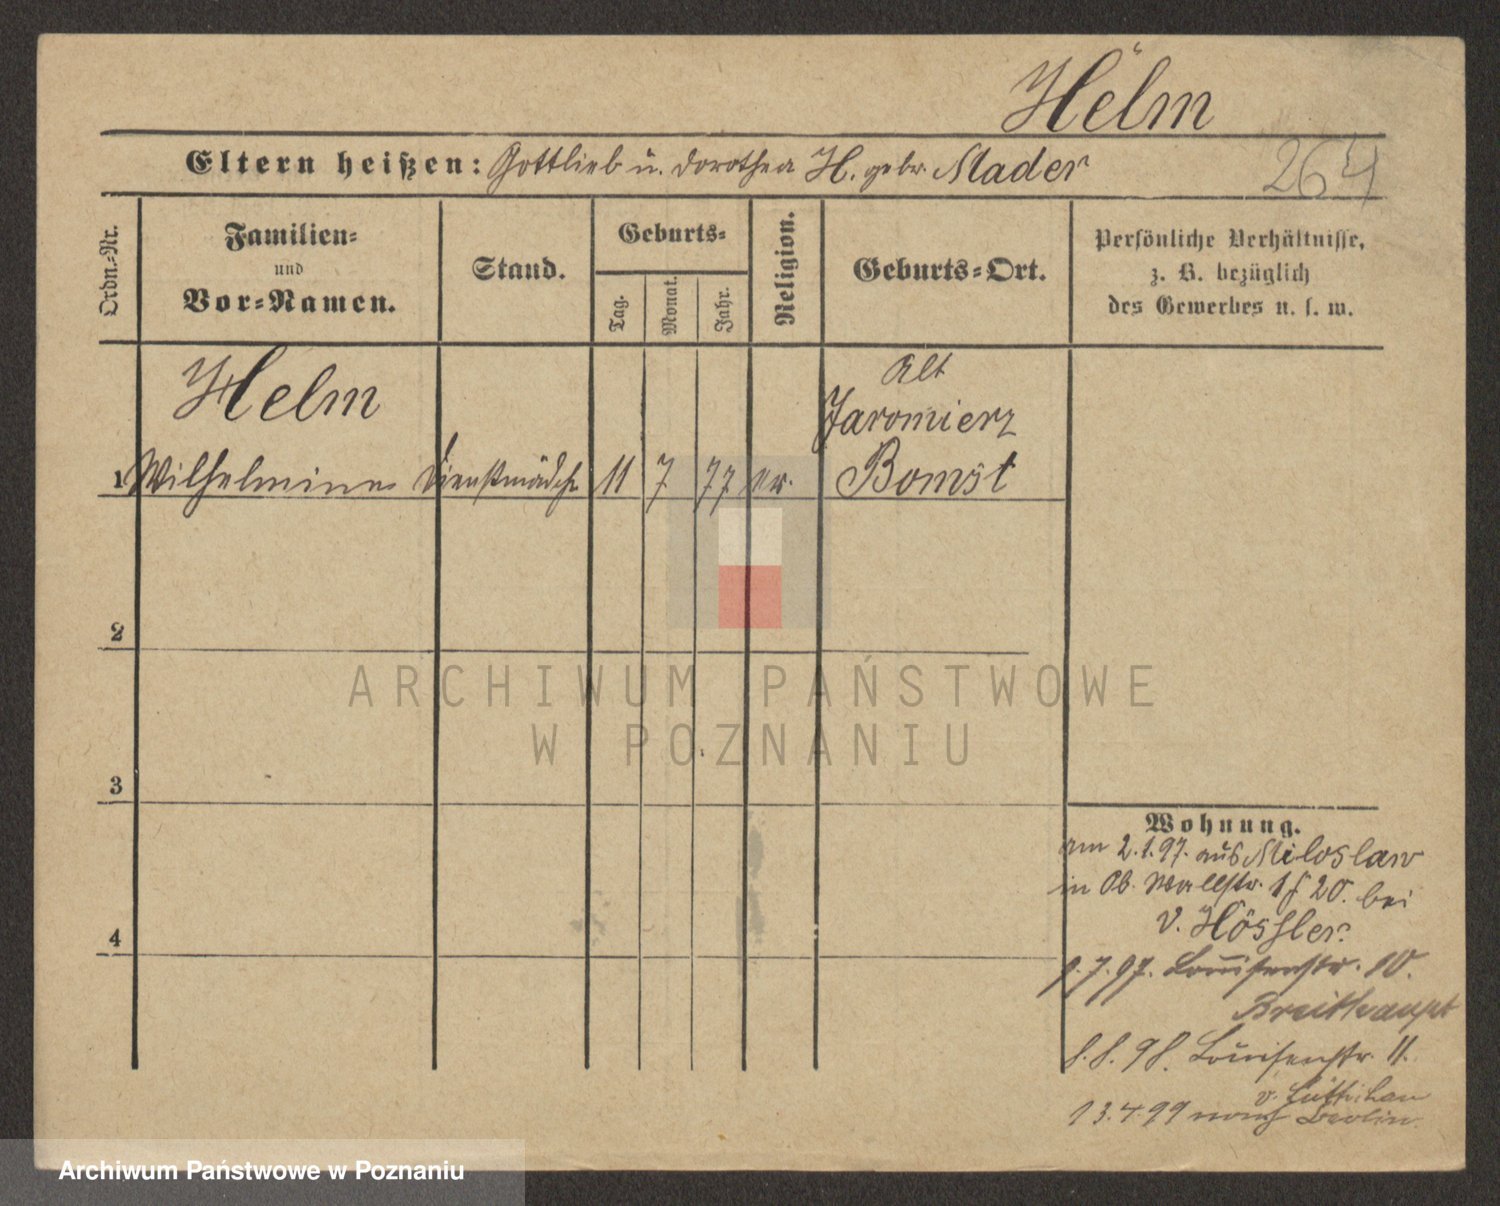 Helm
Eltern heißen: Gottlieb u. Dorothea H. gebr. Mader
264
Ordn.-Nr.
Familien-
und
Vor-Namen.
Stand.
Geburts-
Tag.
Monat.
Jahr.
Religion.
Geburts-Ort.
Persönliche Verhältnisse,
z. B. bezüglich
des Gewerbes u. s. w.
Helm
Alt
Jaromierz
1 Wilhelmine Dienstmädch 11 7 77 ev. Bomst
2
3
4
Wohnung.
am 2.1.97. aus Miloslaw
in Ob. Wallstr. 20. bei
v. Hössler
1.7.97. Louisenstr. 10.
Breithaupt
8.8.98. Louisenstr. 11.
v.
13.4.99 nach Berlin.
ARCHIWUM PAŃSTWOWE
W POZNANIU
Archiwum Państwowe w Poznaniu